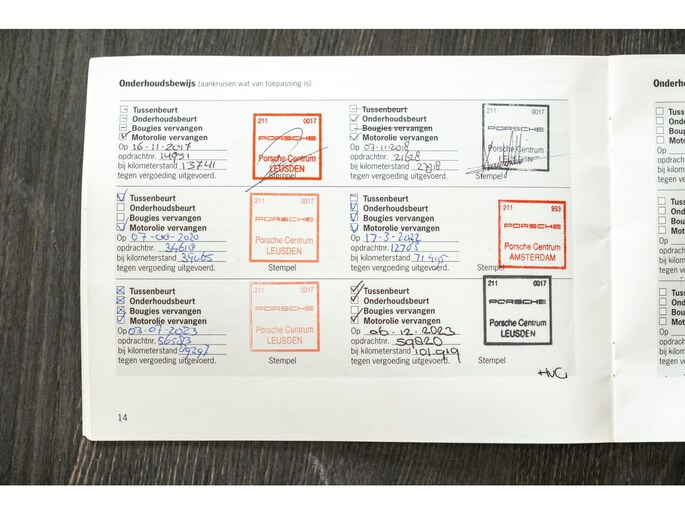 Onderhoudsbewijs (aankruisen wat van toepassing is)
Tussenbeurt
Onderhoudsbeurt
Bougies vervangen
Motorolie vervangen
Op 16-11-2017
opdrachtnr. 14951
bij kilometerstand 13741
tegen vergoeding uitgevoerd.
211 0017
PORSCHE
Porsche Centrum
LEUSDEN
Stempel
Tussenbeurt
Onderhoudsbeurt
Bougies vervangen
Motorolie vervangen
Op 07-11-2018
opdrachtnr. 21628
bij kilometerstand
tegen vergoeding uitgevoerd.
211 0017
PORSCHE
Porsche Centrum
LEUSDEN
Stempel
Tussenbeurt
Onderhoudsbeurt
Bougies vervangen
Motorolie vervangen
Op 2020
opdrachtnr. 34618
bij kilometerstand
tegen vergoeding uitgevoerd.
211 0017
PORSCHE
Porsche Centrum
LEUSDEN
Stempel
Tussenbeurt
Onderhoudsbeurt
Bougies vervangen
Motorolie vervangen
Op 17-3-2022
opdrachtnr. 12705
bij kilometerstand
tegen vergoeding uitgevoerd.
211 993
PORSCHE
Porsche Centrum
AMSTERDAM
Stempel
Tussenbeurt
Onderhoudsbeurt
Bougies vervangen
Motorolie vervangen
Op 03-07-2023
opdrachtnr. 56583
bij kilometerstand
tegen vergoeding uitgevoerd.
211 0017
PORSCHE
Porsche Centrum
LEUSDEN
Tussenbeurt
Onderhoudsbeurt
Bougies vervangen
Motorolie vervangen
Op 06.12.2023
opdrachtnr. 59820
bij kilometerstand 101.919
tegen vergoeding uitgevoerd.
211 0017
PORSCHE
Porsche Centrum
LEUSDEN
Stempel
14